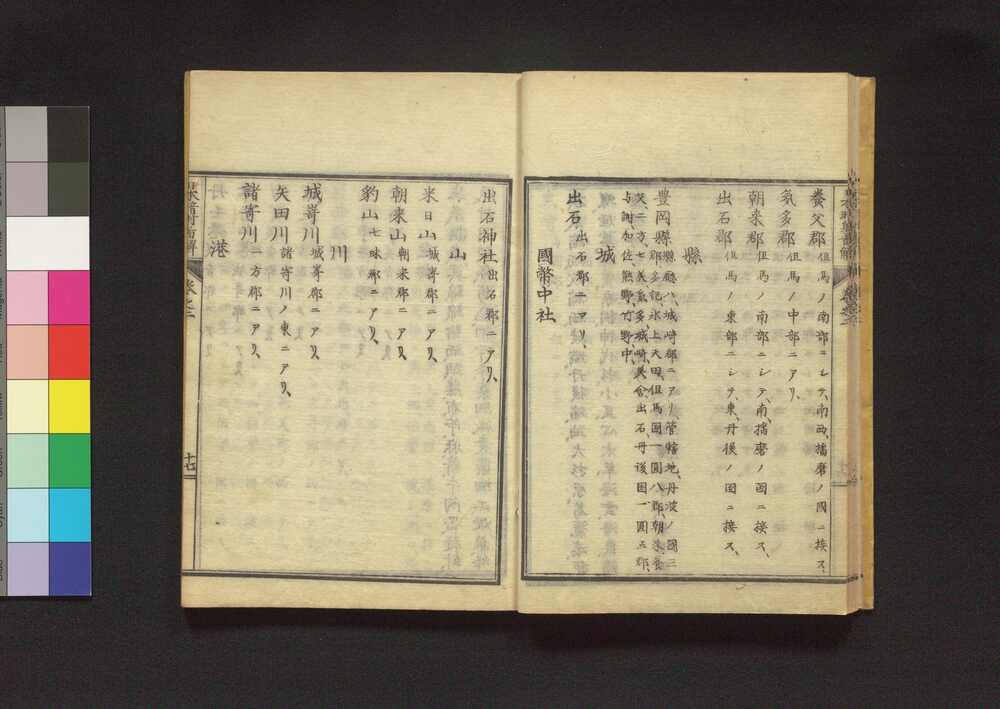 養父郡 但馬ノ南部ニシテ、南西、播磨ノ國ニ接ス、
氣多郡 但馬ノ中部ニアリ、
朝来郡 但馬ノ南部ニシテ、南、播磨ノ國ニ接ス、
出石郡 但馬ノ東部ニシテ、東、丹後ノ國ニ接ス、
縣
豊岡縣 縣廳ハ、城崎郡ニアリ、管轄地、丹波ノ國三
郡、多紀、氷上、天田、但馬國一圓八郡、朝来、養
父、二方、七美、氣多、城崎、美含、出石、丹後國一圓五郡、
与謝、加佐、熊野、竹野、中、
城
出石 出石郡ニアリ、
國幣中社
出石神社 出石郡ニアリ、
山
来日山 城嵜郡ニアリ、
朝来山 朝来郡ニアリ、
豹山 七味郡ニアリ、
川
城嵜川 城嵜郡ニアリ、
矢田川 諸寄川ノ東ニアリ、
諸寄川 二方郡ニアリ、
港
十七